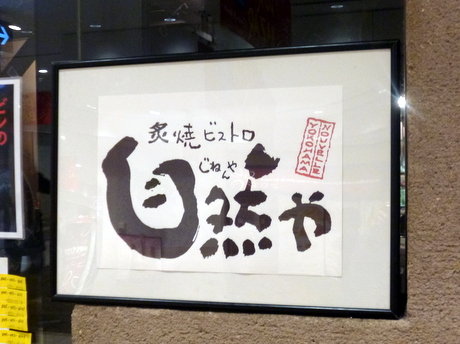 炙焼ビストロ
じねんや
自然や
NOUVELLE
YOKOHAMA